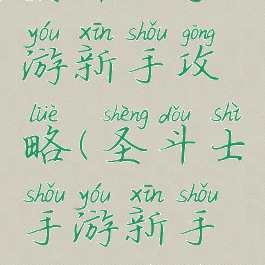 yóu xīn shǒu gōng
游新手攻
lüè shèng dǒu shì
略(圣斗士
shǒu yóu xīn shǒu
手游新手